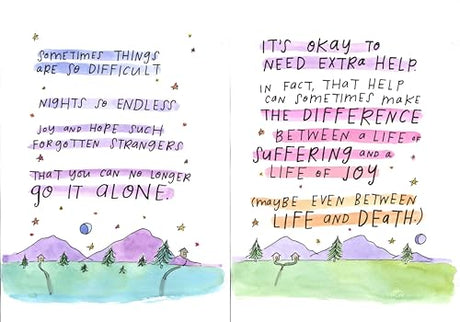 SOMETIMES THINGS
ARE SO DIFFICULT
NIGHTS SO ENDLESS
JOY AND HOPE SUCH
FORGOTTEN STRANGERS
THAT YOU CAN NO LONGER
GO IT ALONE.
IT'S OKAY TO
NEED EXTRA HELP.
IN FACT, THAT HELP
CAN SOMETIMES MAKE
THE DIFFERENCE
BETWEEN A LIFE OF
SUFFERING AND A
LIFE OF JOY
(MAYBE EVEN BETWEEN
LIFE AND DEATH.)